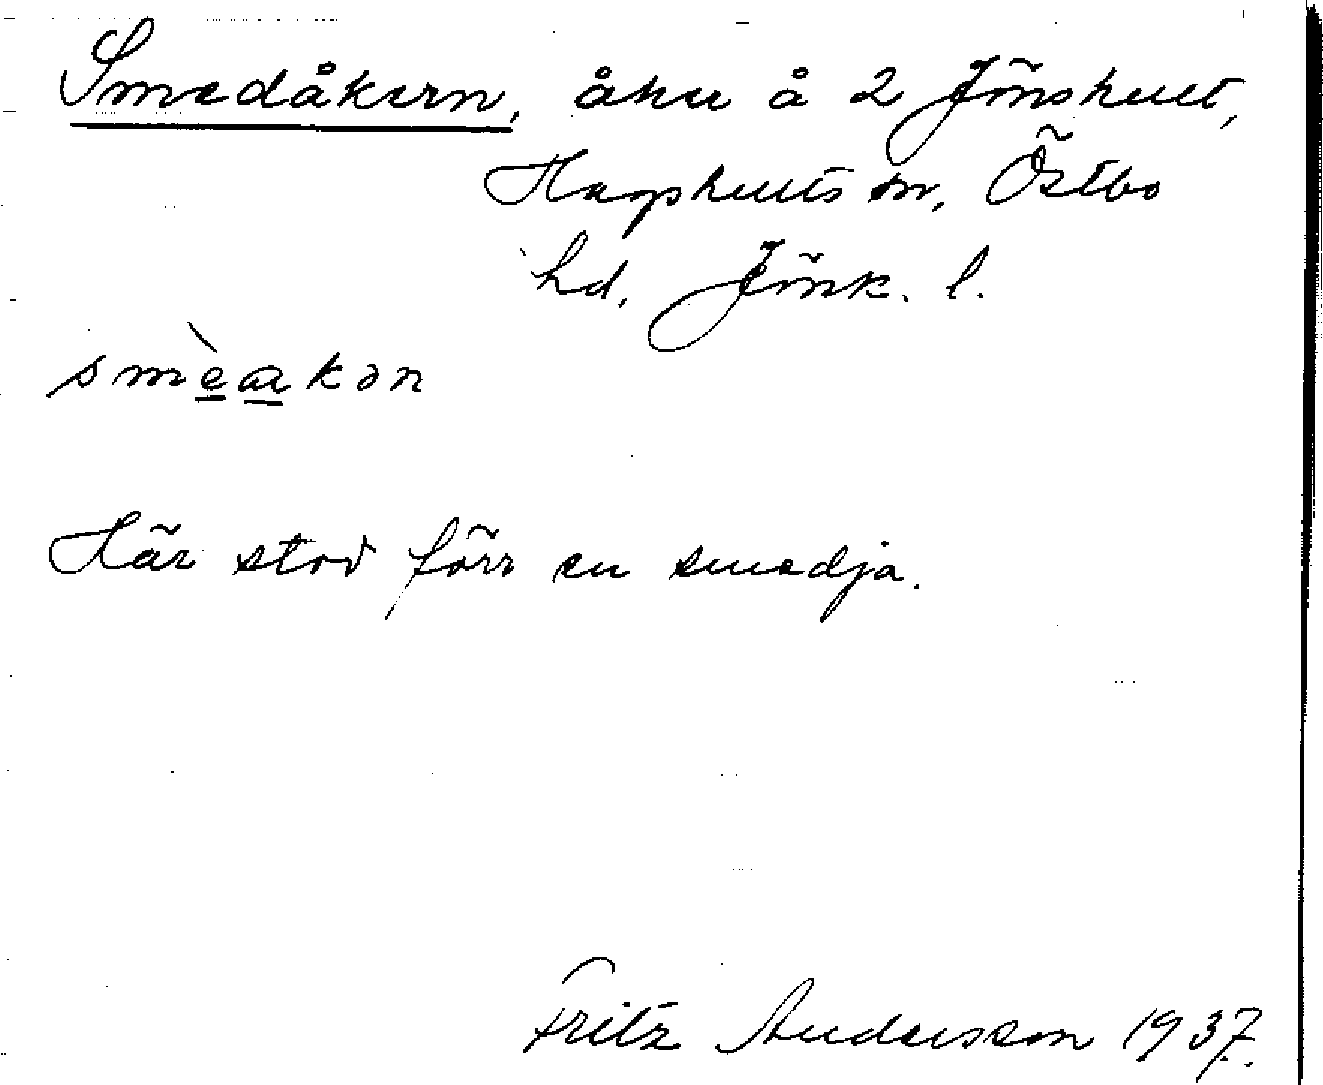 Smedåkern, åker å 2 Jönshult,
Hagshults sn, Östbo
hd. Jönk. l.
smèakən
Här stod förr en smedja.
Fritz Andersson 1937.